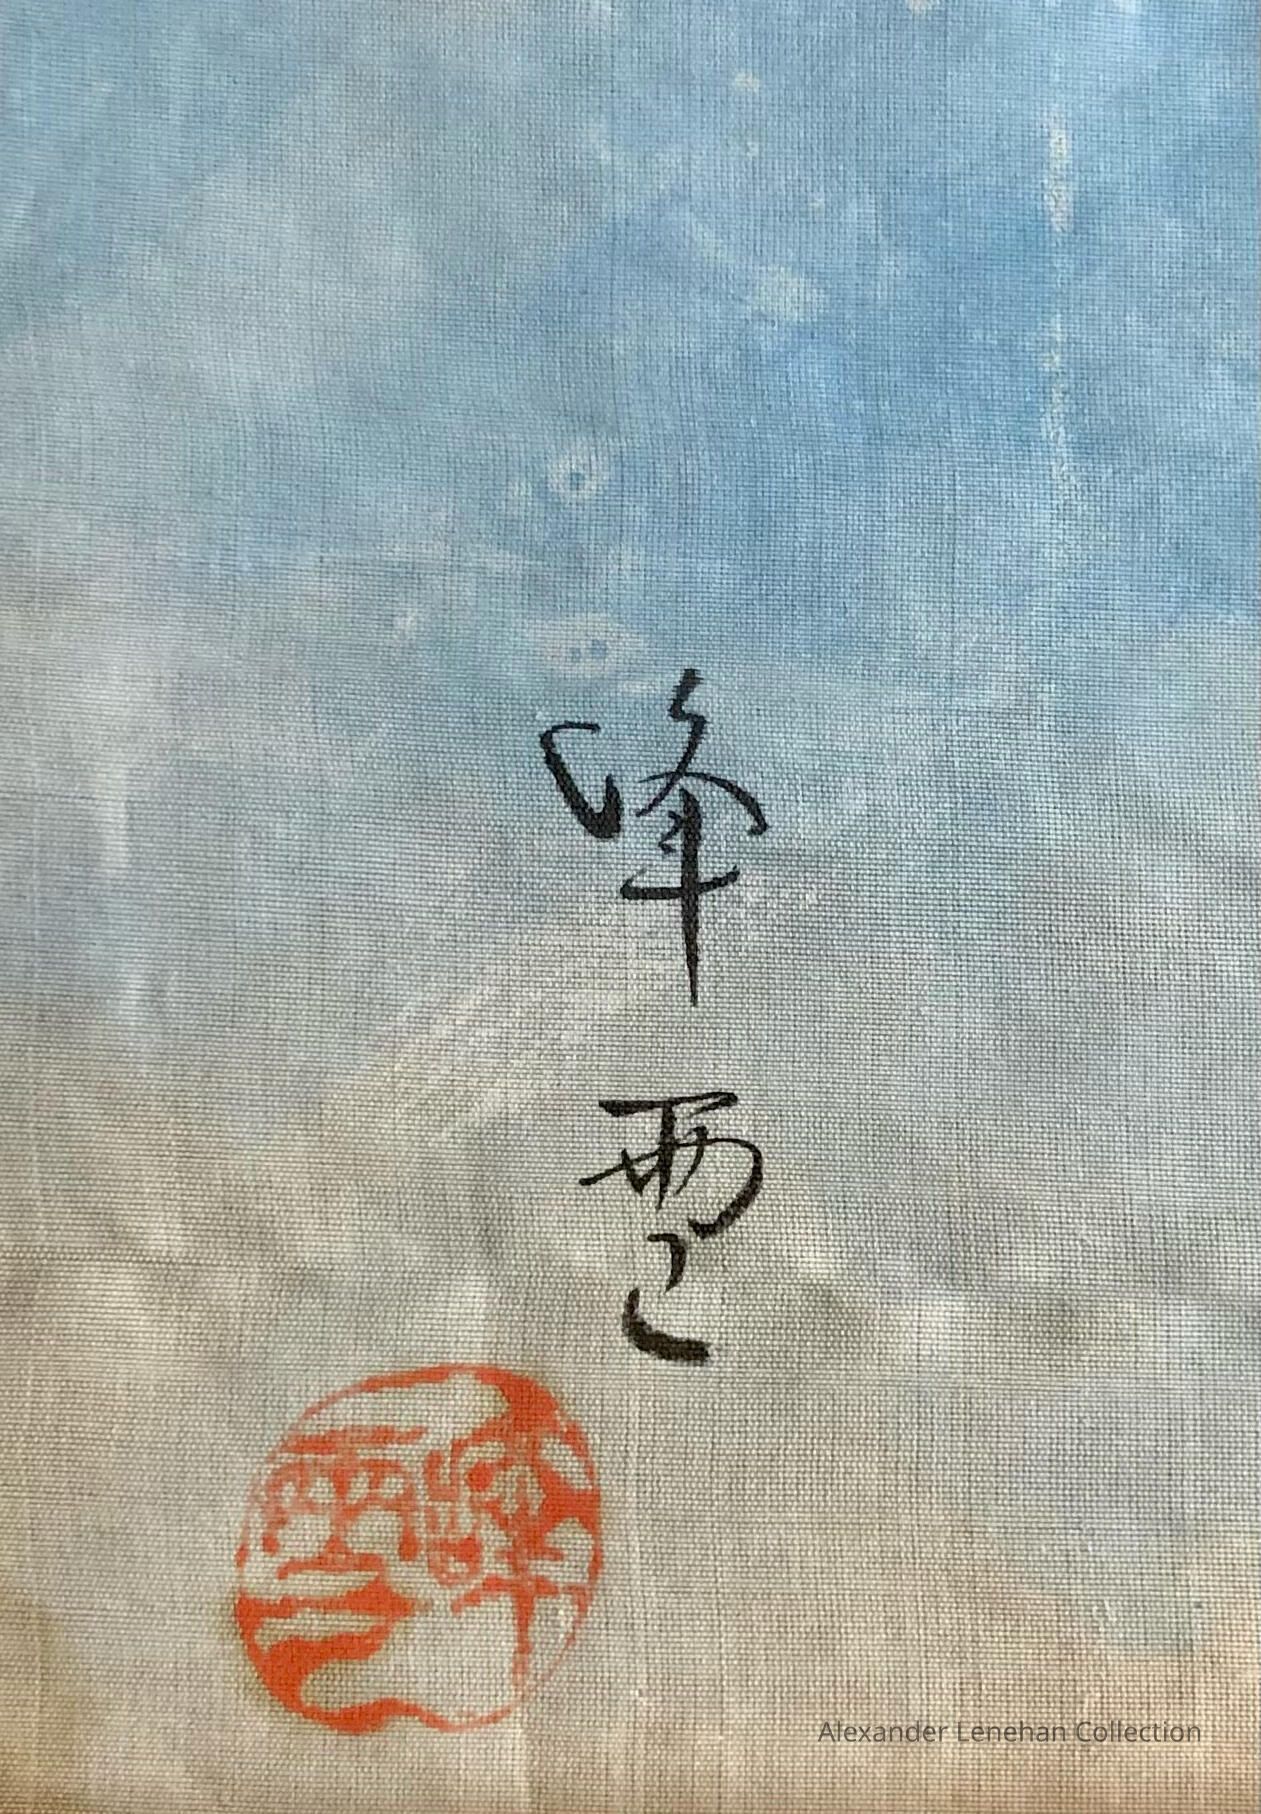 峰雲
峰雲
Alexander Lenehan Collection